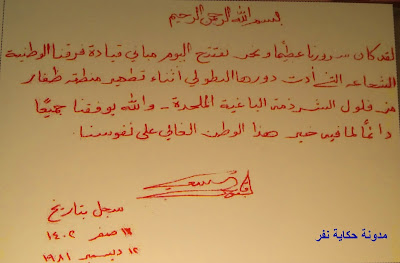 بسم الله الرحمن الرحيم
لقد كان سرورنا عظيما ونحن نفتتح اليوم مباني قيادة فرقنا الوطنية
الشجاعه التي أدت دورها البطولي أثناء تطهير منطقة ظفار
من فلول الشرذمة الباغية الملحدة .. والله يوفقنا جميعًا
دائمًا لما فيه خير هذا الوطن الغالي على نفوسنا .
سجل بتاريخ
صفر ١٤٠٢
١٢ ديسمبر ١٩٨١
مدونة حكاية نفر